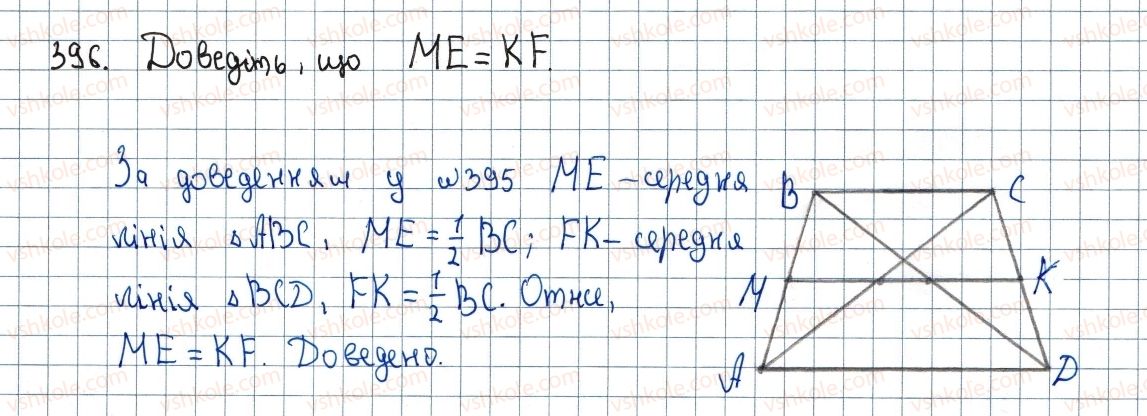 396. Доведіть, що ME = KF.
За доведенням у №395 ME – середня
лінія △ABC, ME = 1/2 BC; FK – середня
лінія △BCD, FK = 1/2 BC. Отже,
ME = KF. Доведено.
B C
M K
A D
vshkole.com